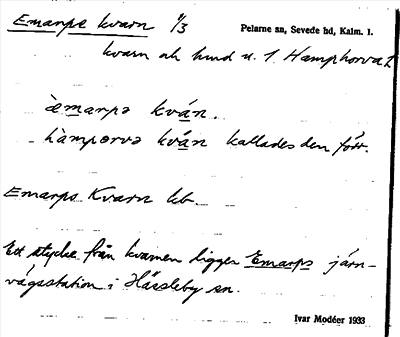 Emarps kvarn 1/3
Pelarne sn, Sevede hd, Kalm. l.
kvarn och hund u. 1 Hamphorva 2
æ̀marpə kván.
hàmpərvə kván kallades den förr.
Emarps Kvarn kb.
Ett stycke från kvarnen ligger Emarps järn-
vägsstation i Hässleby sn.
Ivar Modéer 1933